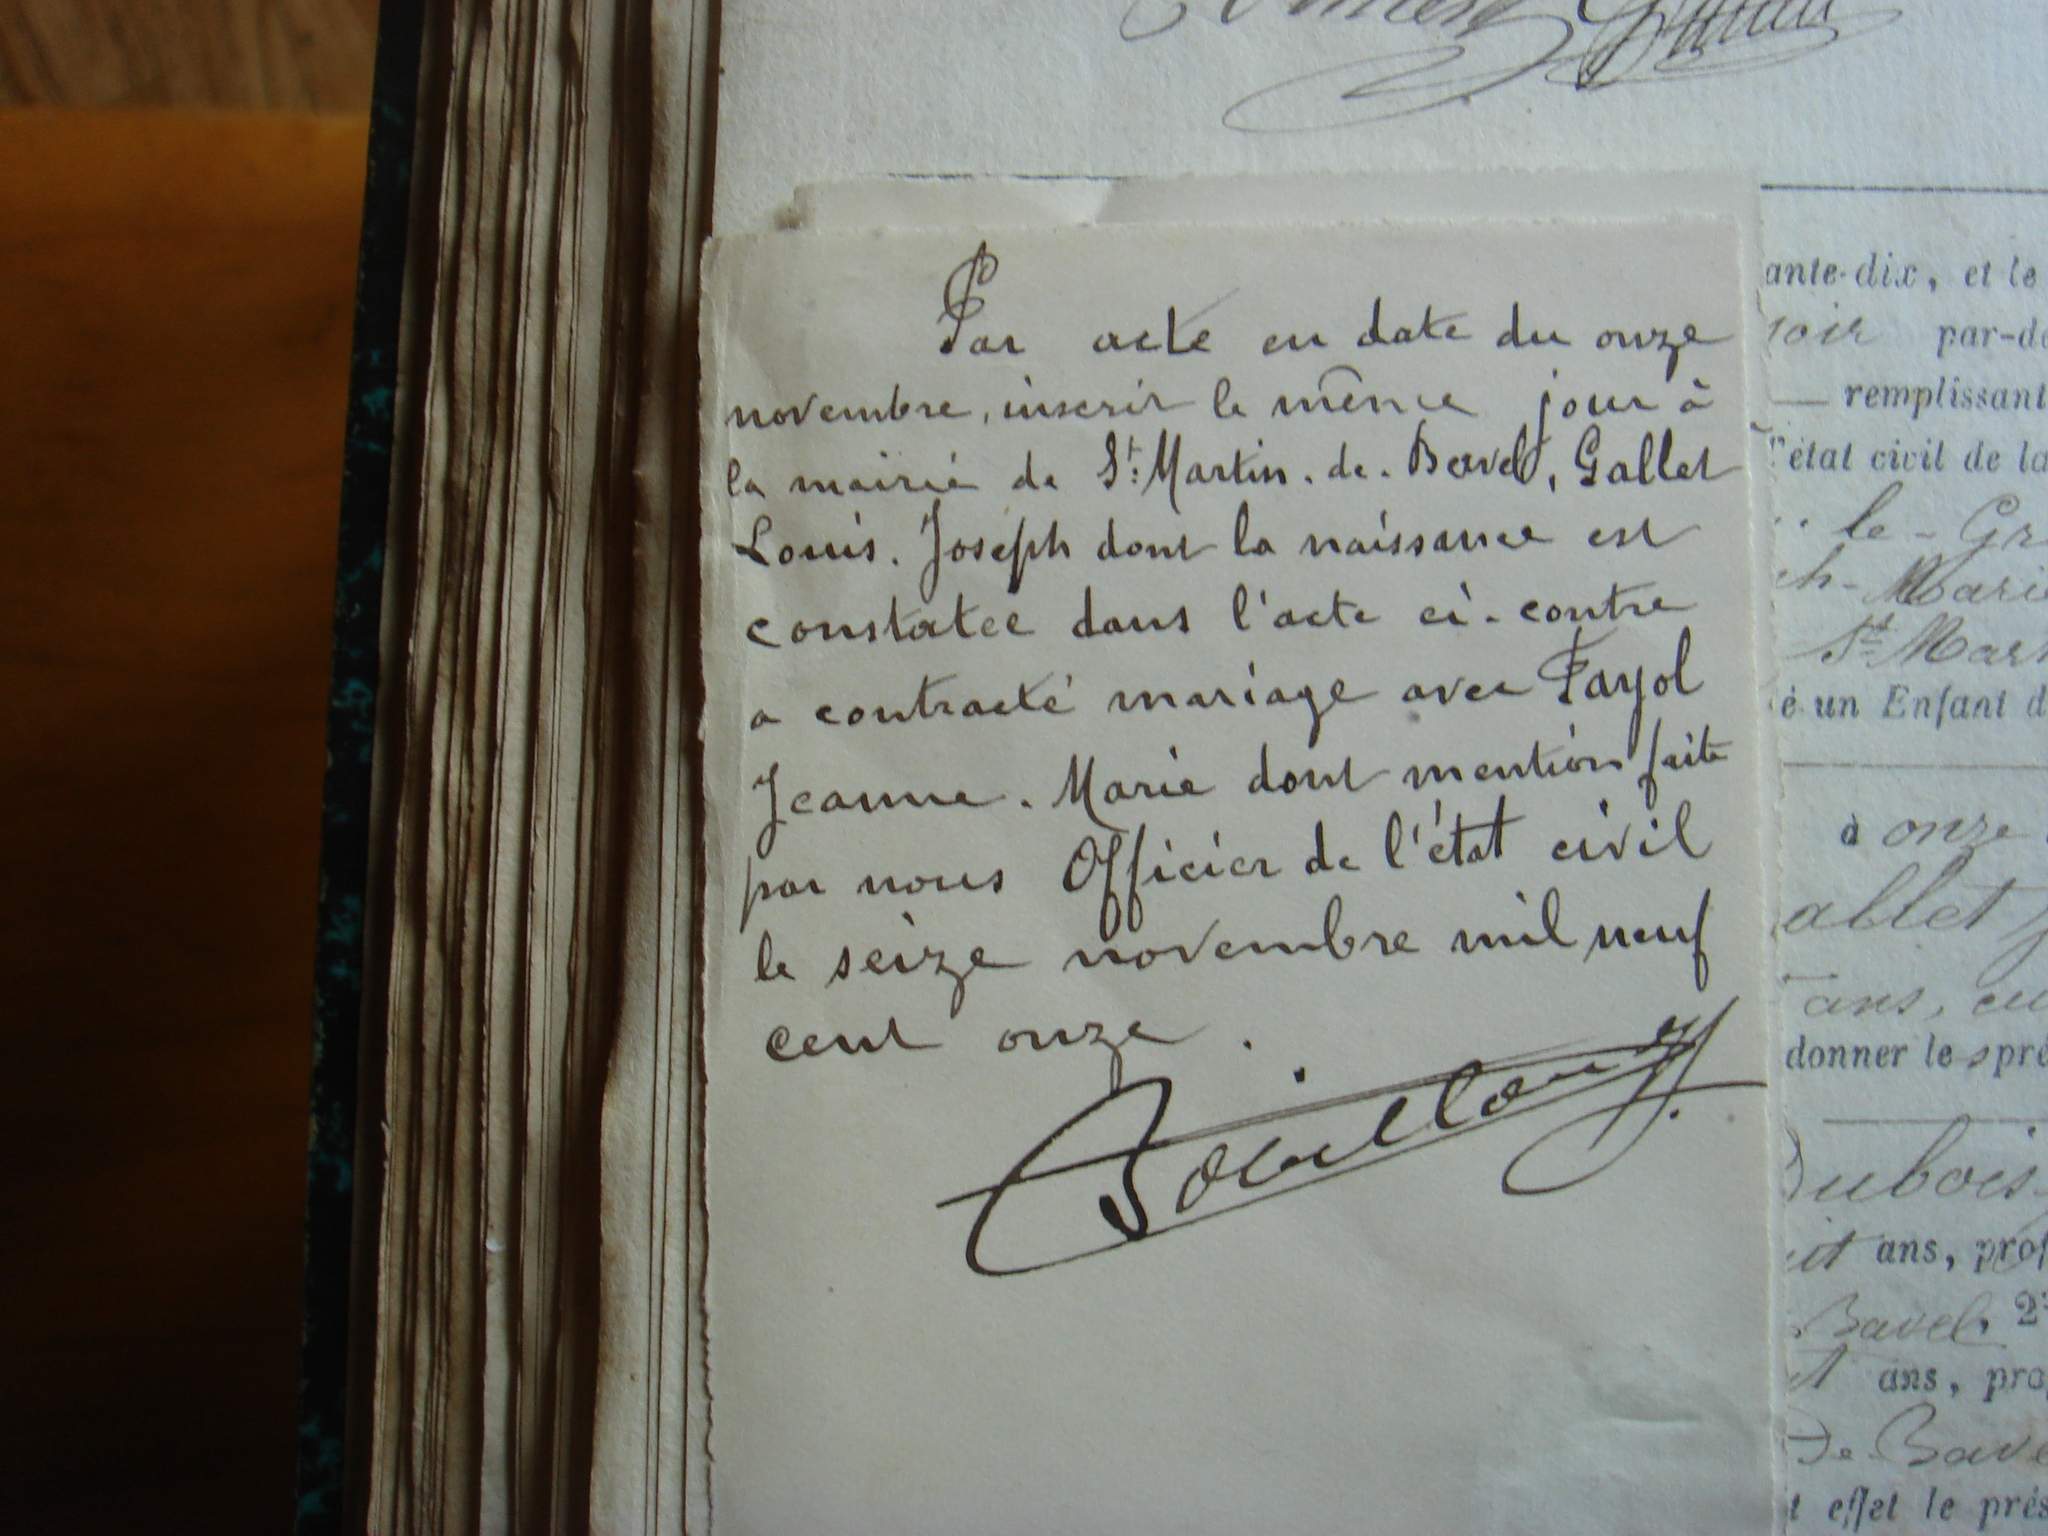 Par acte en date du onze
novembre, inscrit le même jour à
la mairie de St. Martin-de-Bavel, Gallet
Louis-Joseph dont la naissance est
constatée dans l'acte ci-contre
a contracté mariage avec Payol
Jeanne-Marie dont mention faite
par nous Officier de l'état civil
le seize novembre mil neuf
cent onze.
ante-dix, et le
soir par-de
remplissant
l'état civil de la
le-Gr
ph-Marie
St Mart
é un Enfant d
à onze
allet J
ans, cu
donner le spré
Dubois
it ans, prof
Bavel, 2
t ans, pro
De Bave
t effet le prés